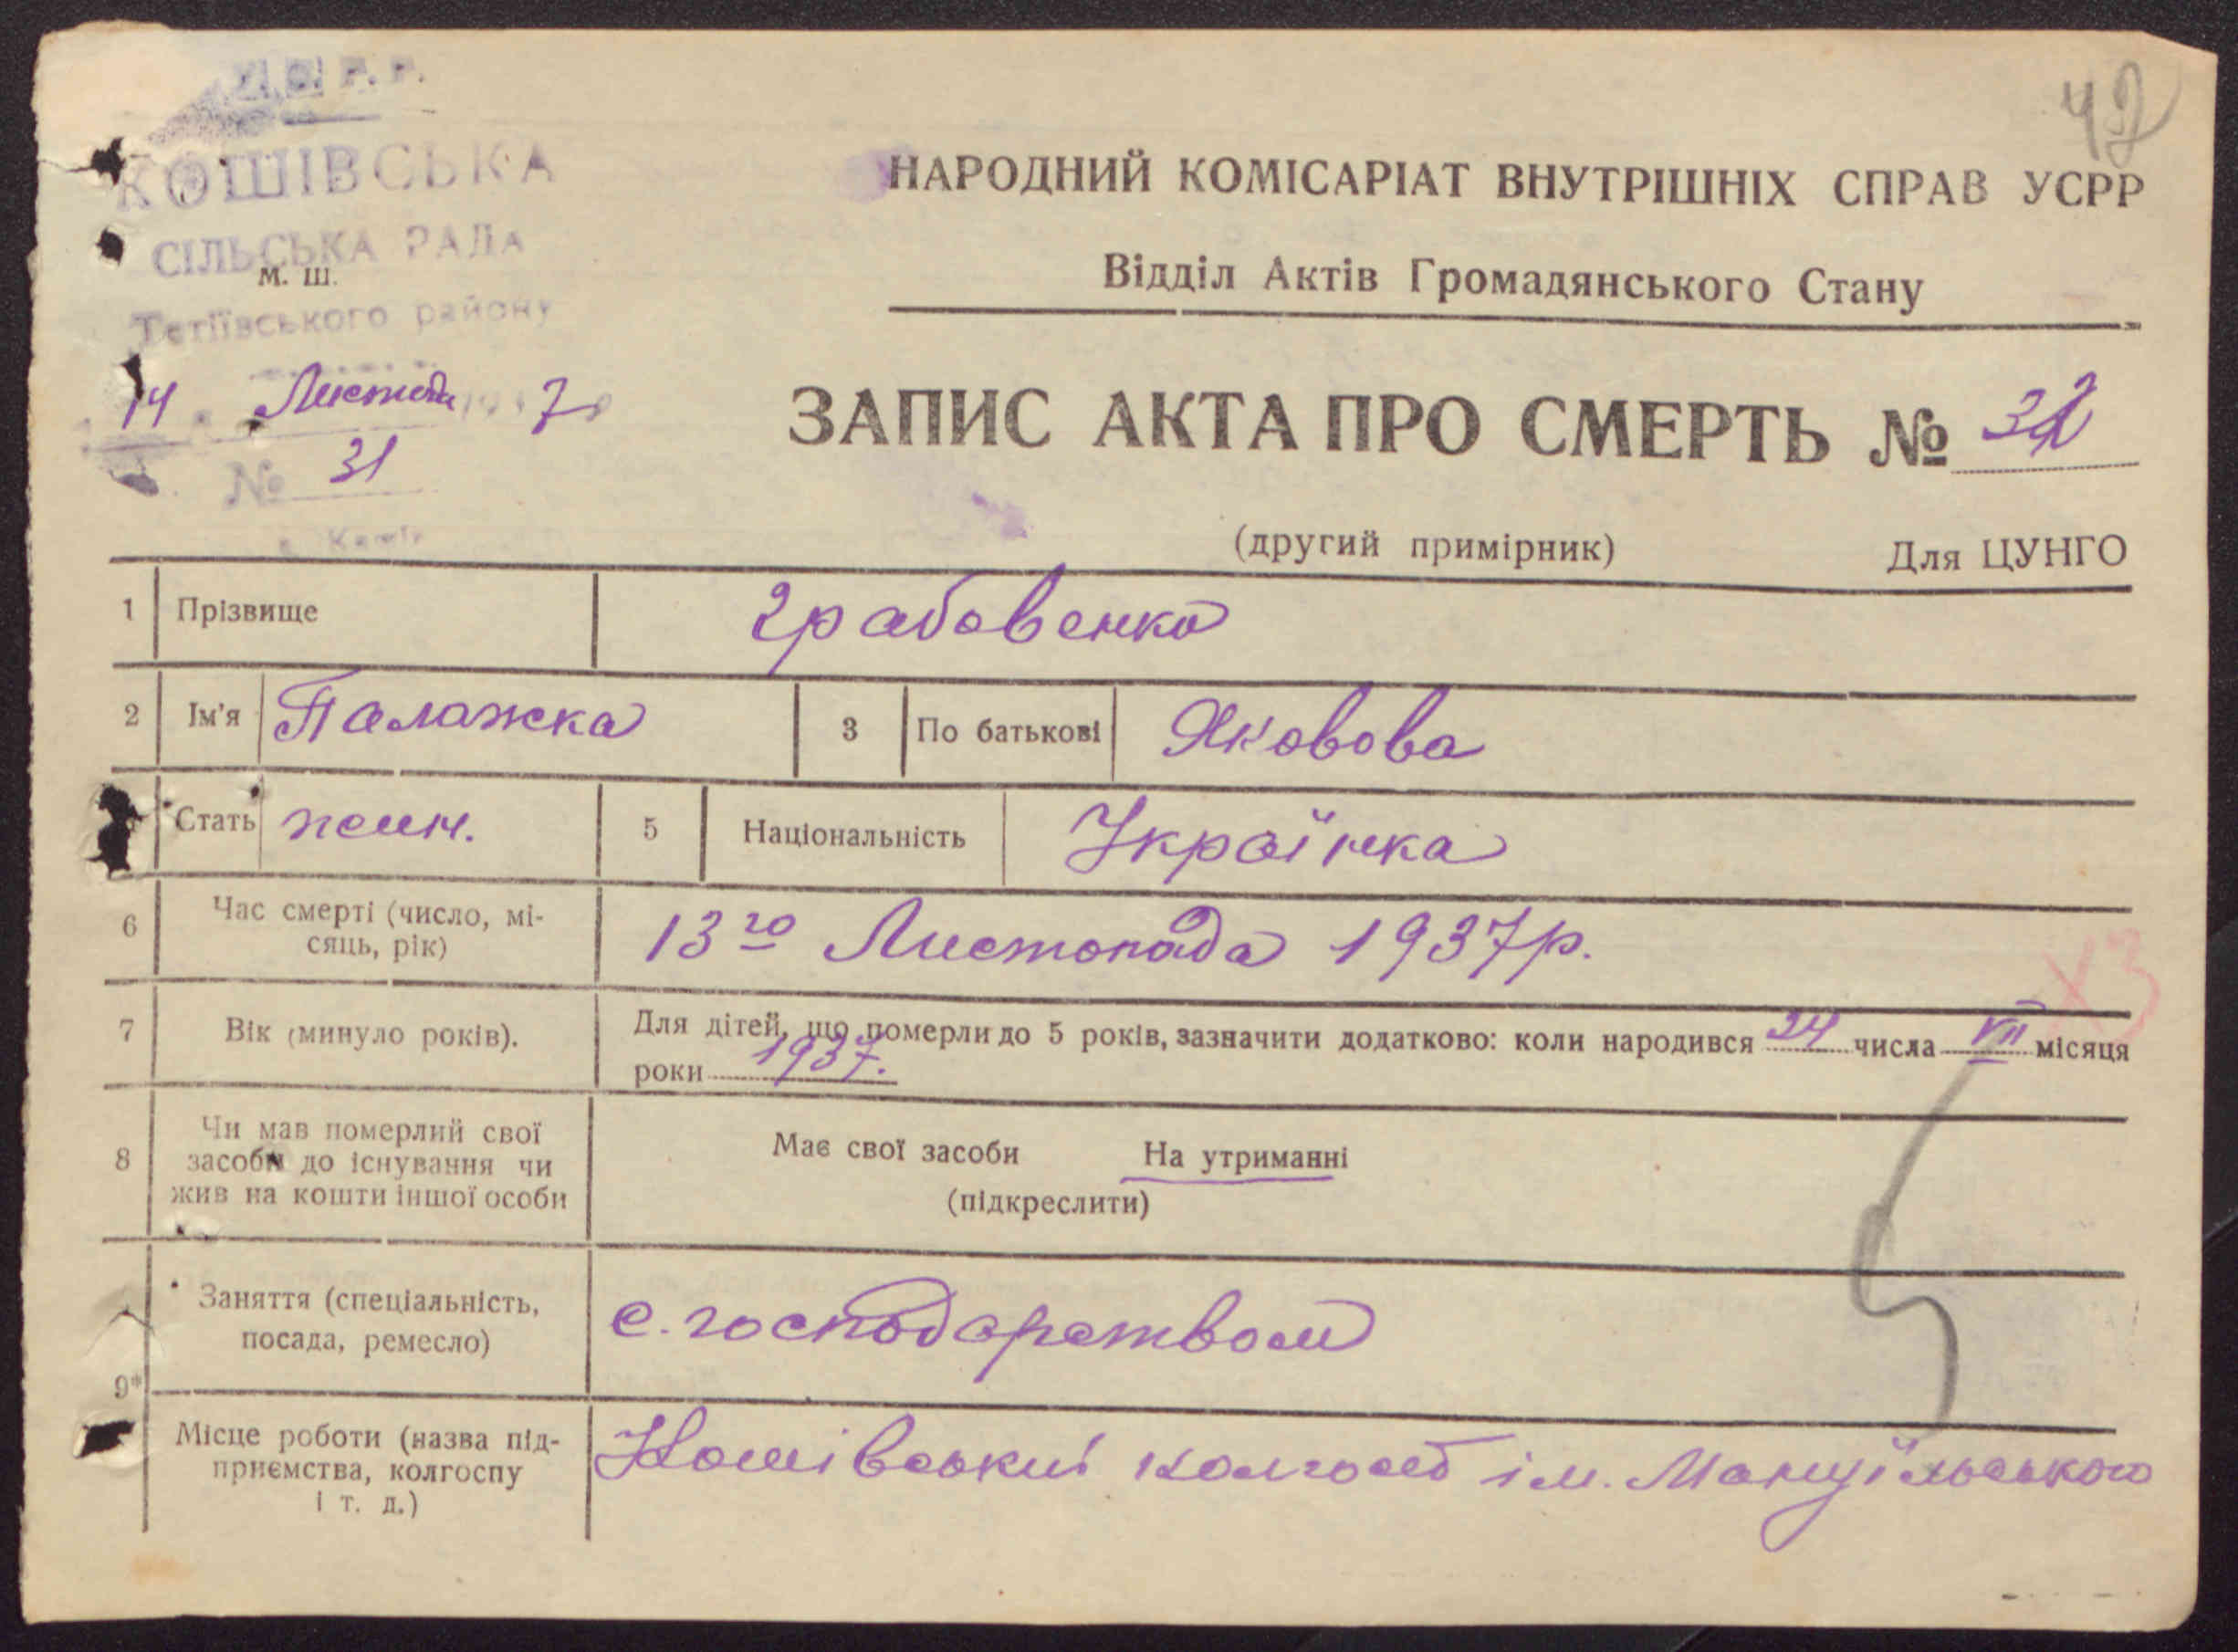 У.С.Р.Р.
КОШІВСЬКА
СІЛЬСЬКА РАДА
м. ш.
Тетіївського району
14 Листопада 1937 р
№ 31
с. Кошів
42
НАРОДНИЙ КОМІСАРІАТ ВНУТРІШНІХ СПРАВ УСРР
Відділ Актів Громадянського Стану
ЗАПИС АКТА ПРО СМЕРТЬ № 32
(другий примірник) Для ЦУНГО
1 Прізвище Грабовенко
2 Ім'я Палажка 3 По батькові Яковова
Стать жін. 5 Національність Українка
6 Час смерті (число, мі-
сяць, рік) 13го Листопада 1937 р.
Х3
7 Вік (минуло років). Для дітей, що померли до 5 років, зазначити додатково: коли народився 24 числа VII місяця
роки 1937.
8 Чи мав померлий свої
засоби до існування чи
жив на кошти іншої особи
Має свої засоби На утриманні
(підкреслити)
Заняття (спеціальність,
посада, ремесло) с. господарством
9*
Місце роботи (назва під-
приємства, колгоспу
і т. д.) Кошівський колгосп ім. Мануїльського